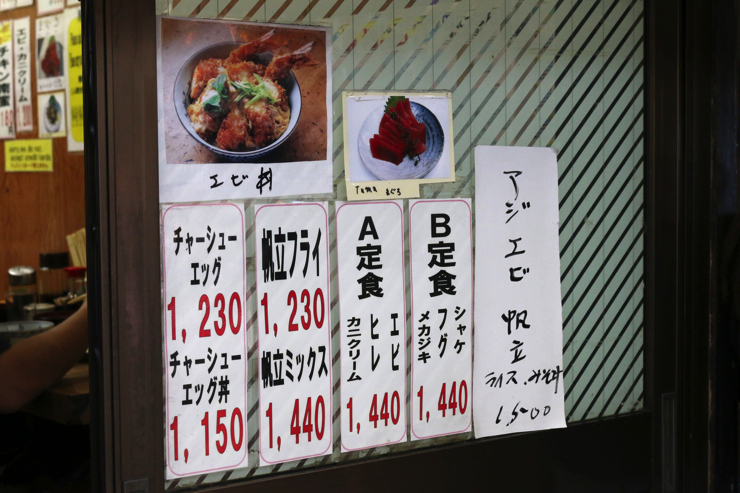 エビ・カニクリーム
チキン南蛮
エビ丼
Tuna まぐろ
チャーシュー
エッグ
1,230
チャーシュー
エッグ丼
1,150
帆立フライ
1,230
帆立ミックス
1,440
A定食
エビ
ヒレ
カニクリーム
1,440
B定食
シャケ
フグ
メカジキ
1,440
アジ エビ 帆立
ライス、みそ汁
1,500